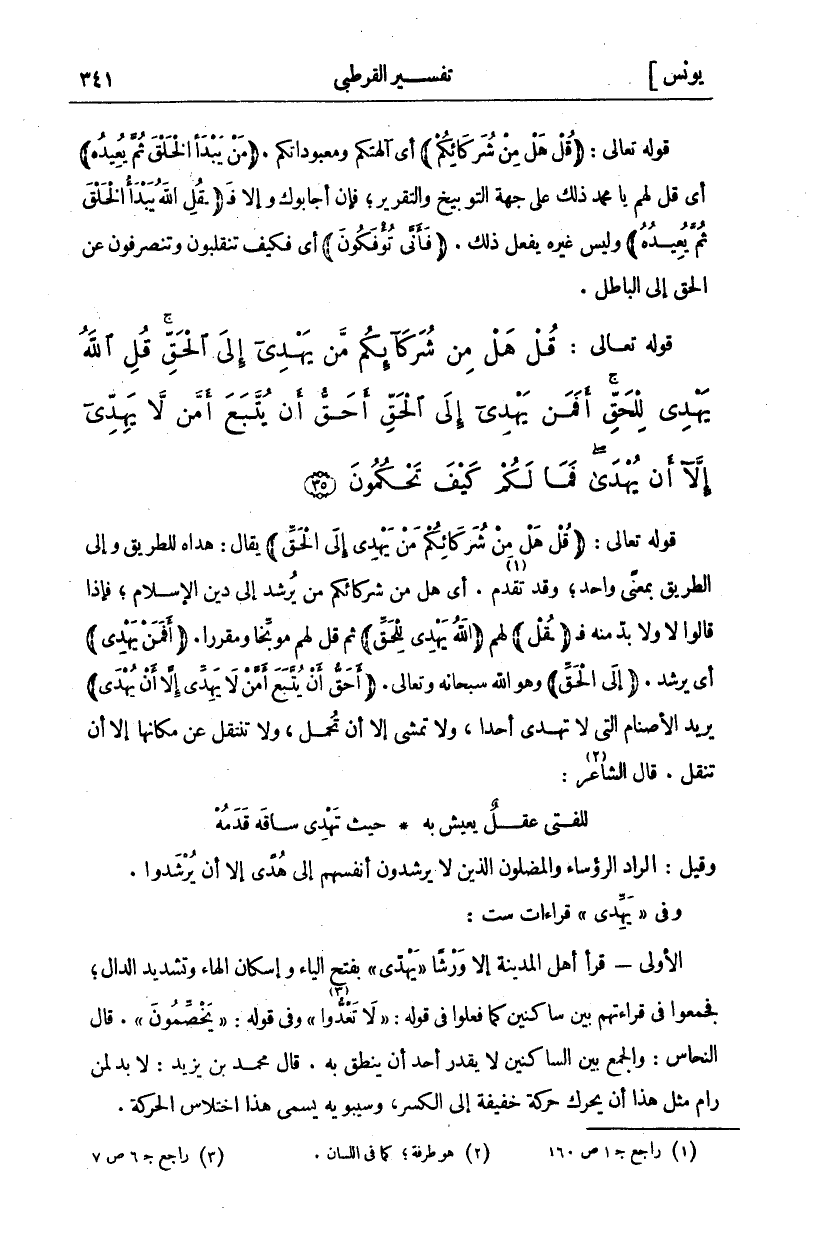 يونس ] تفسير القرطبى ٣٤١
قوله تعالى : ﴿قُلْ هَلْ مِنْ شُرَكَائِكُمْ﴾ أى آلهتكم ومعبوداتكم . ﴿مَنْ يَبْدَأُ الْخَلْقَ ثُمَّ يُعِيدُهُ﴾
أى قل لهم يا محمد ذلك على جهة التوبيخ والتقرير؛ فإن أجابوك وإلا فـ﴿ـقُلِ اللَّهُ يَبْدَأُ الْخَلْقَ
ثُمَّ يُعِيـدُهُ﴾ وليس غيره يفعل ذلك . ﴿فَأَنَّى تُؤْفَكُونَ﴾ أى فكيف تنقلبون وتنصرفون عن
الحق إلى الباطل .
قوله تعـالى : قُـلْ هَلْ مِن شُرَكَآئِكُم مَّن يَهْدِىٓ إِلَى ٱلْحَقِّ ۚ قُلِ ٱللَّهُ
يَهْدِى لِلْحَقِّ ۚ أَفَمَـن يَهْدِىٓ إِلَى ٱلْحَقِّ أَحَقُّ أَن يُتَّبَعَ أَمَّن لَّا يَهِدِّىٓ
إِلَّآ أَن يُهْدَىٰ ۖ فَمَـا لَـكُمْ كَيْفَ تَحْـكُمُونَ ﴿٣٥﴾
قوله تعالى : ﴿قُلْ هَلْ مِنْ شُرَكَائِكُمْ مَنْ يَهْدِى إِلَى الْحَقِّ﴾ يقال : هداه للطريق وإلى
الطريق بمعنًى واحد؛ وقد تقدم (١) . أى هل من شركائكم من يُرشد إلى دين الإسـلام ؛ فإذا
قالوا لا ولا بدّ منه فـ﴿ـقُلْ﴾ لهم ﴿اللَّهُ يَهْدِى لِلْحَقِّ﴾ ثم قل لهم موبّخا ومقررا. ﴿أَفَمَنْ يَهْدِى﴾
أى يرشد . ﴿إِلَى الْحَقِّ﴾ وهو الله سبحانه وتعالى. ﴿أَحَقُّ أَنْ يُتَّبَعَ أَمَّنْ لَا يَهِدِّى إِلَّا أَنْ يُهْدَى﴾
يريد الأصنام التى لا تهـدى أحدا ، ولا تمشى إلا أن تُحمـل ، ولا تنتقل عن مكانها إلا أن
تنقل . قال الشاعر (٢) :
للفـتى عقـــلٌ يعيش به * حيث تَهْدِى سـاقَه قَدَمُهْ
وقيل : الراد الرؤساء والمضلون الذين لا يرشدون أنفسهم إلى هُدًى إلا أن يُرْشَدوا .
وفى « يَهِدِّى » قراءات ست :
الأولى – قرأ أهل المدينة إلا وَرْشًا «يَهْدّى» بفتح الياء وإسكان الهاء وتشديد الدال؛
فجمعوا فى قراءتهم بين ساكنين كما فعلوا فى قوله : « لَا تَعْدُّوا (٣) » وفى قوله : « يَخْصِّمُونَ » . قال
النحاس : والجمع بين الساكنين لا يقدر أحد أن ينطق به . قال محمـد بن يزيد : لا بد لمن
رام مثل هذا أن يحرك حركة خفيفة إلى الكسر، وسيبويه يسمى هذا اختلاس الحركة .
(١) راجع جـ ١ ص ١٦٠ (٢) هو طرفة ؛ كما فى اللسان . (٣) راجع جـ ٦ ص ٧